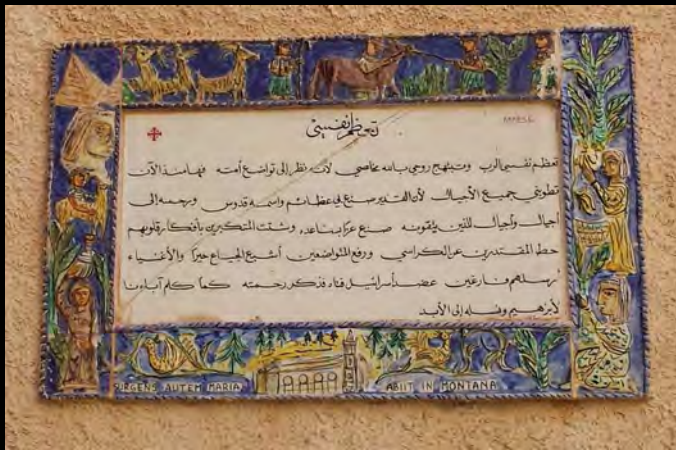 تعظم نفسي
تعظم نفسي الرب وتبتهج روحي بالله مخلصي لأنه نظر إلى تواضع أمته فها منذ الآن
تطوبني جميع الأجيال لأن القدير صنع لي عظائم واسمه قدوس ورحمته إلى
أجيال وأجيال للذين يتقونه صنع عزا بساعده وشتت المتكبرين بأفكار قلوبهم
حط المقتدرين عن الكراسي ورفع المتواضعين أشبع الجياع خيرا والأغنياء
أرسلهم فارغين عضد إسرائيل فتاه فذكر رحمته كما كلم آباءنا
لإبرهيم ونسله إلى الأبد
SURGENS AUTEM MARIA ABIIT IN MONTANA